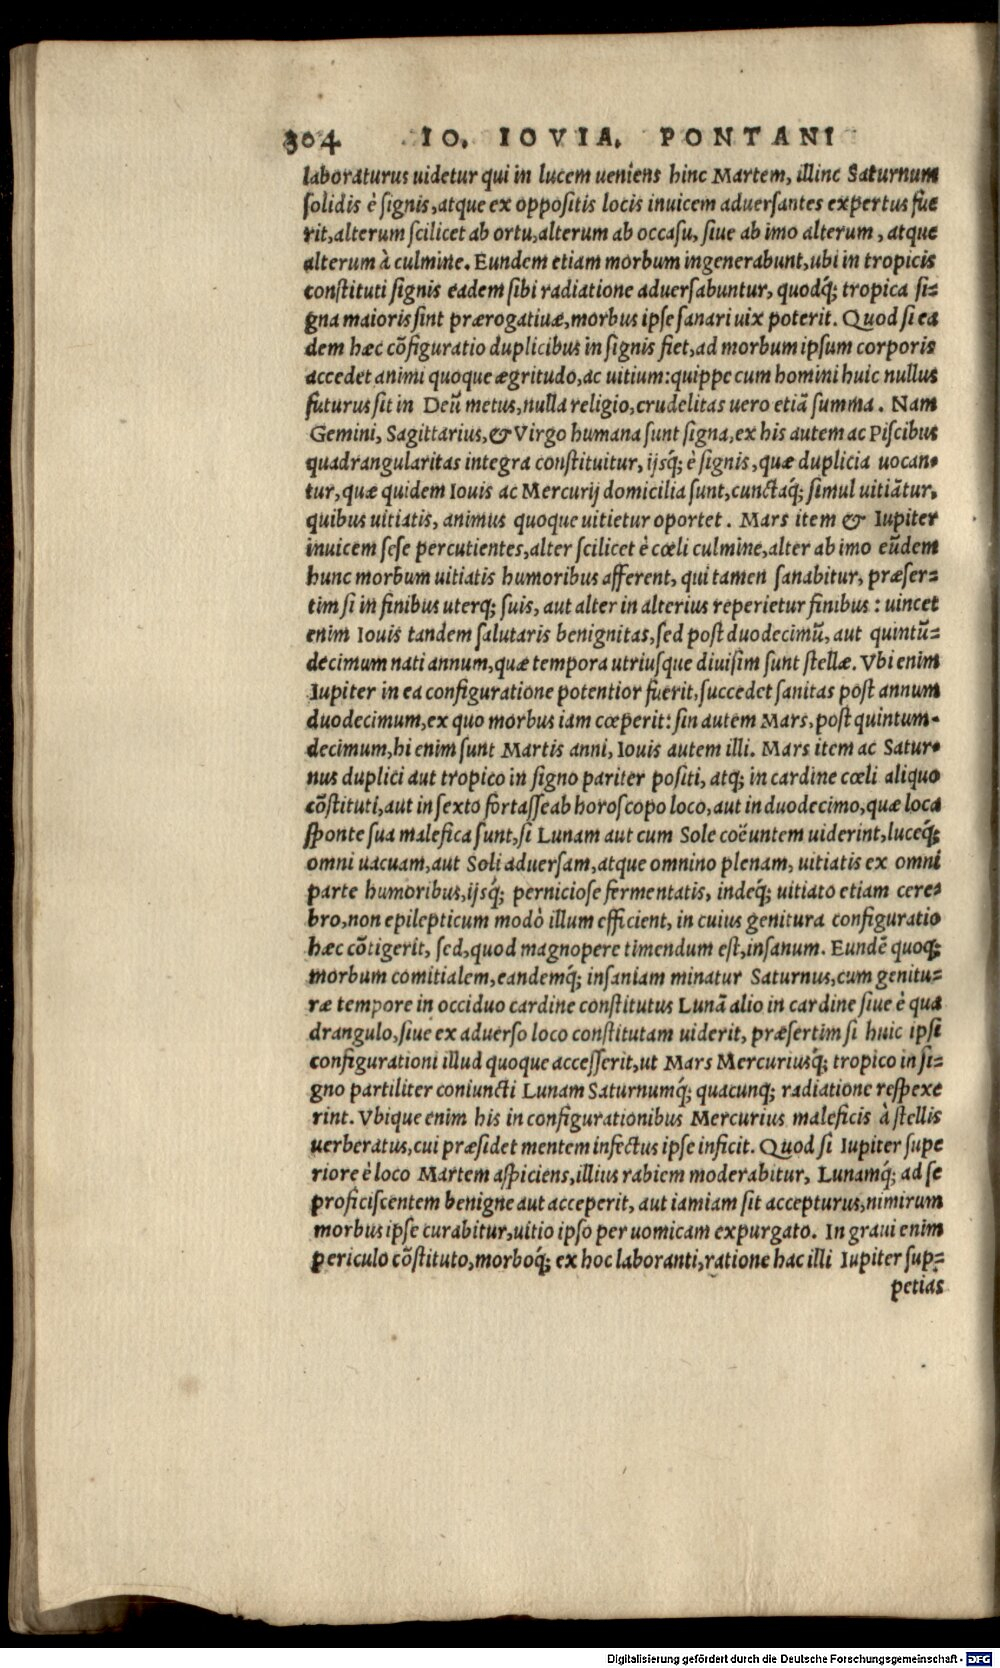 304 IO. IOVIA. PONTANI
laboraturus uidetur qui in lucem ueniens hinc Martem, illinc Saturnum
solidis è signis, atque ex oppositis locis inuicem aduersantes expertus fue
rit, alterum scilicet ab ortu, alterum ab occasu, siue ab imo alterum, atque
alterum à culmine. Eundem etiam morbum ingenerabunt, ubi in tropicis
constituti signis eadem sibi radiatione aduersabuntur, quodq́; tropica si=
gna maioris sint prærogatiuæ, morbus ipse sanari uix poterit. Quod si ea
dem hæc cõfiguratio duplicibus in signis fiet, ad morbum ipsum corporis
accedet animi quoque ægritudo, ac uitium: quippe cum homini huic nullus
futurus sit in Deũ metus, nulla religio, crudelitas uero etiã summa. Nam
Gemini, Sagittarius, & Virgo humana sunt signa, ex his autem ac Piscibus
quadrangularitas integra constituitur, ijsq́; è signis, quæ duplicia uocan=
tur, quæ quidem Iouis ac Mercurij domicilia sunt, cunctaq́; simul uitiãtur,
quibus uitiatis, animus quoque uitietur oportet. Mars item & Iupiter
inuicem sese percutientes, alter scilicet è cœli culmine, alter ab imo eũdem
hunc morbum uitiatis humoribus afferent, qui tamen sanabitur, præser=
tim si in finibus uterq; suis, aut alter in alterius reperietur finibus: uincet
enim Iouis tandem salutaris benignitas, sed post duodecimũ, aut quintũ=
decimum nati annum, quæ tempora utriusque diuisim sunt stellæ. Vbi enim
Iupiter in ea configuratione potentior fuerit, succedet sanitas post annum
duodecimum, ex quo morbus iam cœperit: sin autem Mars, post quintum=
decimum, hi enim sunt Martis anni, Iouis autem illi. Mars item ac Satur=
nus duplici aut tropico in signo pariter positi, atq; in cardine cœli aliquo
cõstituti, aut in sexto fortasse ab horoscopo loco, aut in duodecimo, quæ loca
sponte sua malefica sunt, si Lunam aut cum Sole coëuntem uiderint, luceq́;
omni uacuam, aut Soli aduersam, atque omnino plenam, uitiatis ex omni
parte humoribus, ijsq́; perniciose fermentatis, indeq́; uitiato etiam cere=
bro, non epilepticum modò illum efficient, in cuius genitura configuratio
hæc cõtigerit, sed, quod magnopere timendum est, insanum. Eundẽ quoq;
morbum comitialem, eandemq́; insaniam minatur Saturnus, cum genitu=
ræ tempore in occiduo cardine constitutus Lunã alio in cardine siue è qua
drangulo, siue ex aduerso loco constitutam uiderit, præsertim si huic ipsi
configurationi illud quoque accesserit, ut Mars Mercuriusq́; tropico in si=
gno partiliter coniuncti Lunam Saturnumq́; quacunq; radiatione respexe
rint. Vbique enim his in configurationibus Mercurius maleficis à stellis
uerberatus, cui præsidet mentem infectus ipse inficit. Quod si Iupiter supe
riore è loco Martem aspiciens, illius rabiem moderabitur, Lunamq́; ad se
proficiscentem benigne aut acceperit, aut iamiam sit accepturus, nimirum
morbus ipse curabitur, uitio ipso per uomicam expurgato. In graui enim
periculo cõstituto, morboq́; ex hoc laboranti, ratione hac illi Iupiter sup=
petias
Digitalisierung gefördert durch die Deutsche Forschungsgemeinschaft - DFG